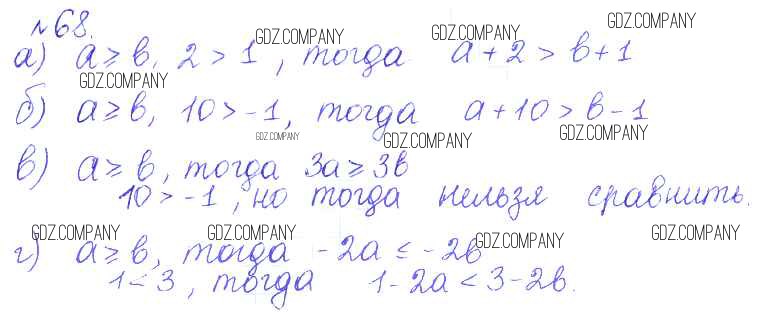 №68.
а) a ≥ b, 2 > 1, тогда a + 2 > b + 1
б) a ≥ b, 10 > -1, тогда a + 10 > b - 1
в) a ≥ b, тогда 3a ≥ 3b
10 > -1, но тогда нельзя сравнить.
г) a ≥ b, тогда -2a ≤ -2b
1 < 3, тогда 1 - 2a < 3 - 2b.
GDZ.COMPANY
GDZ.COMPANY
GDZ.COMPANY
GDZ.COMPANY
GDZ.COMPANY
GDZ.COMPANY
GDZ.COMPANY
GDZ.COMPANY
GDZ.COMPANY
GDZ.COMPANY
GDZ.COMPANY